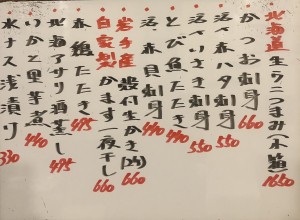 北海道生うにつまみ(一舟) 1650
かつお刺身 660
活、赤ハタ刺身 550
活、いさき刺身 550
とび魚たたき 440
活、赤貝刺身 440
岩手産殻付生かき(1ヶ) 660
自家製かます一夜干し 660
赤鶏たたき 495
北海アサリ酒蒸し 495
いかと里芋煮 440
水ナス浅漬り 330